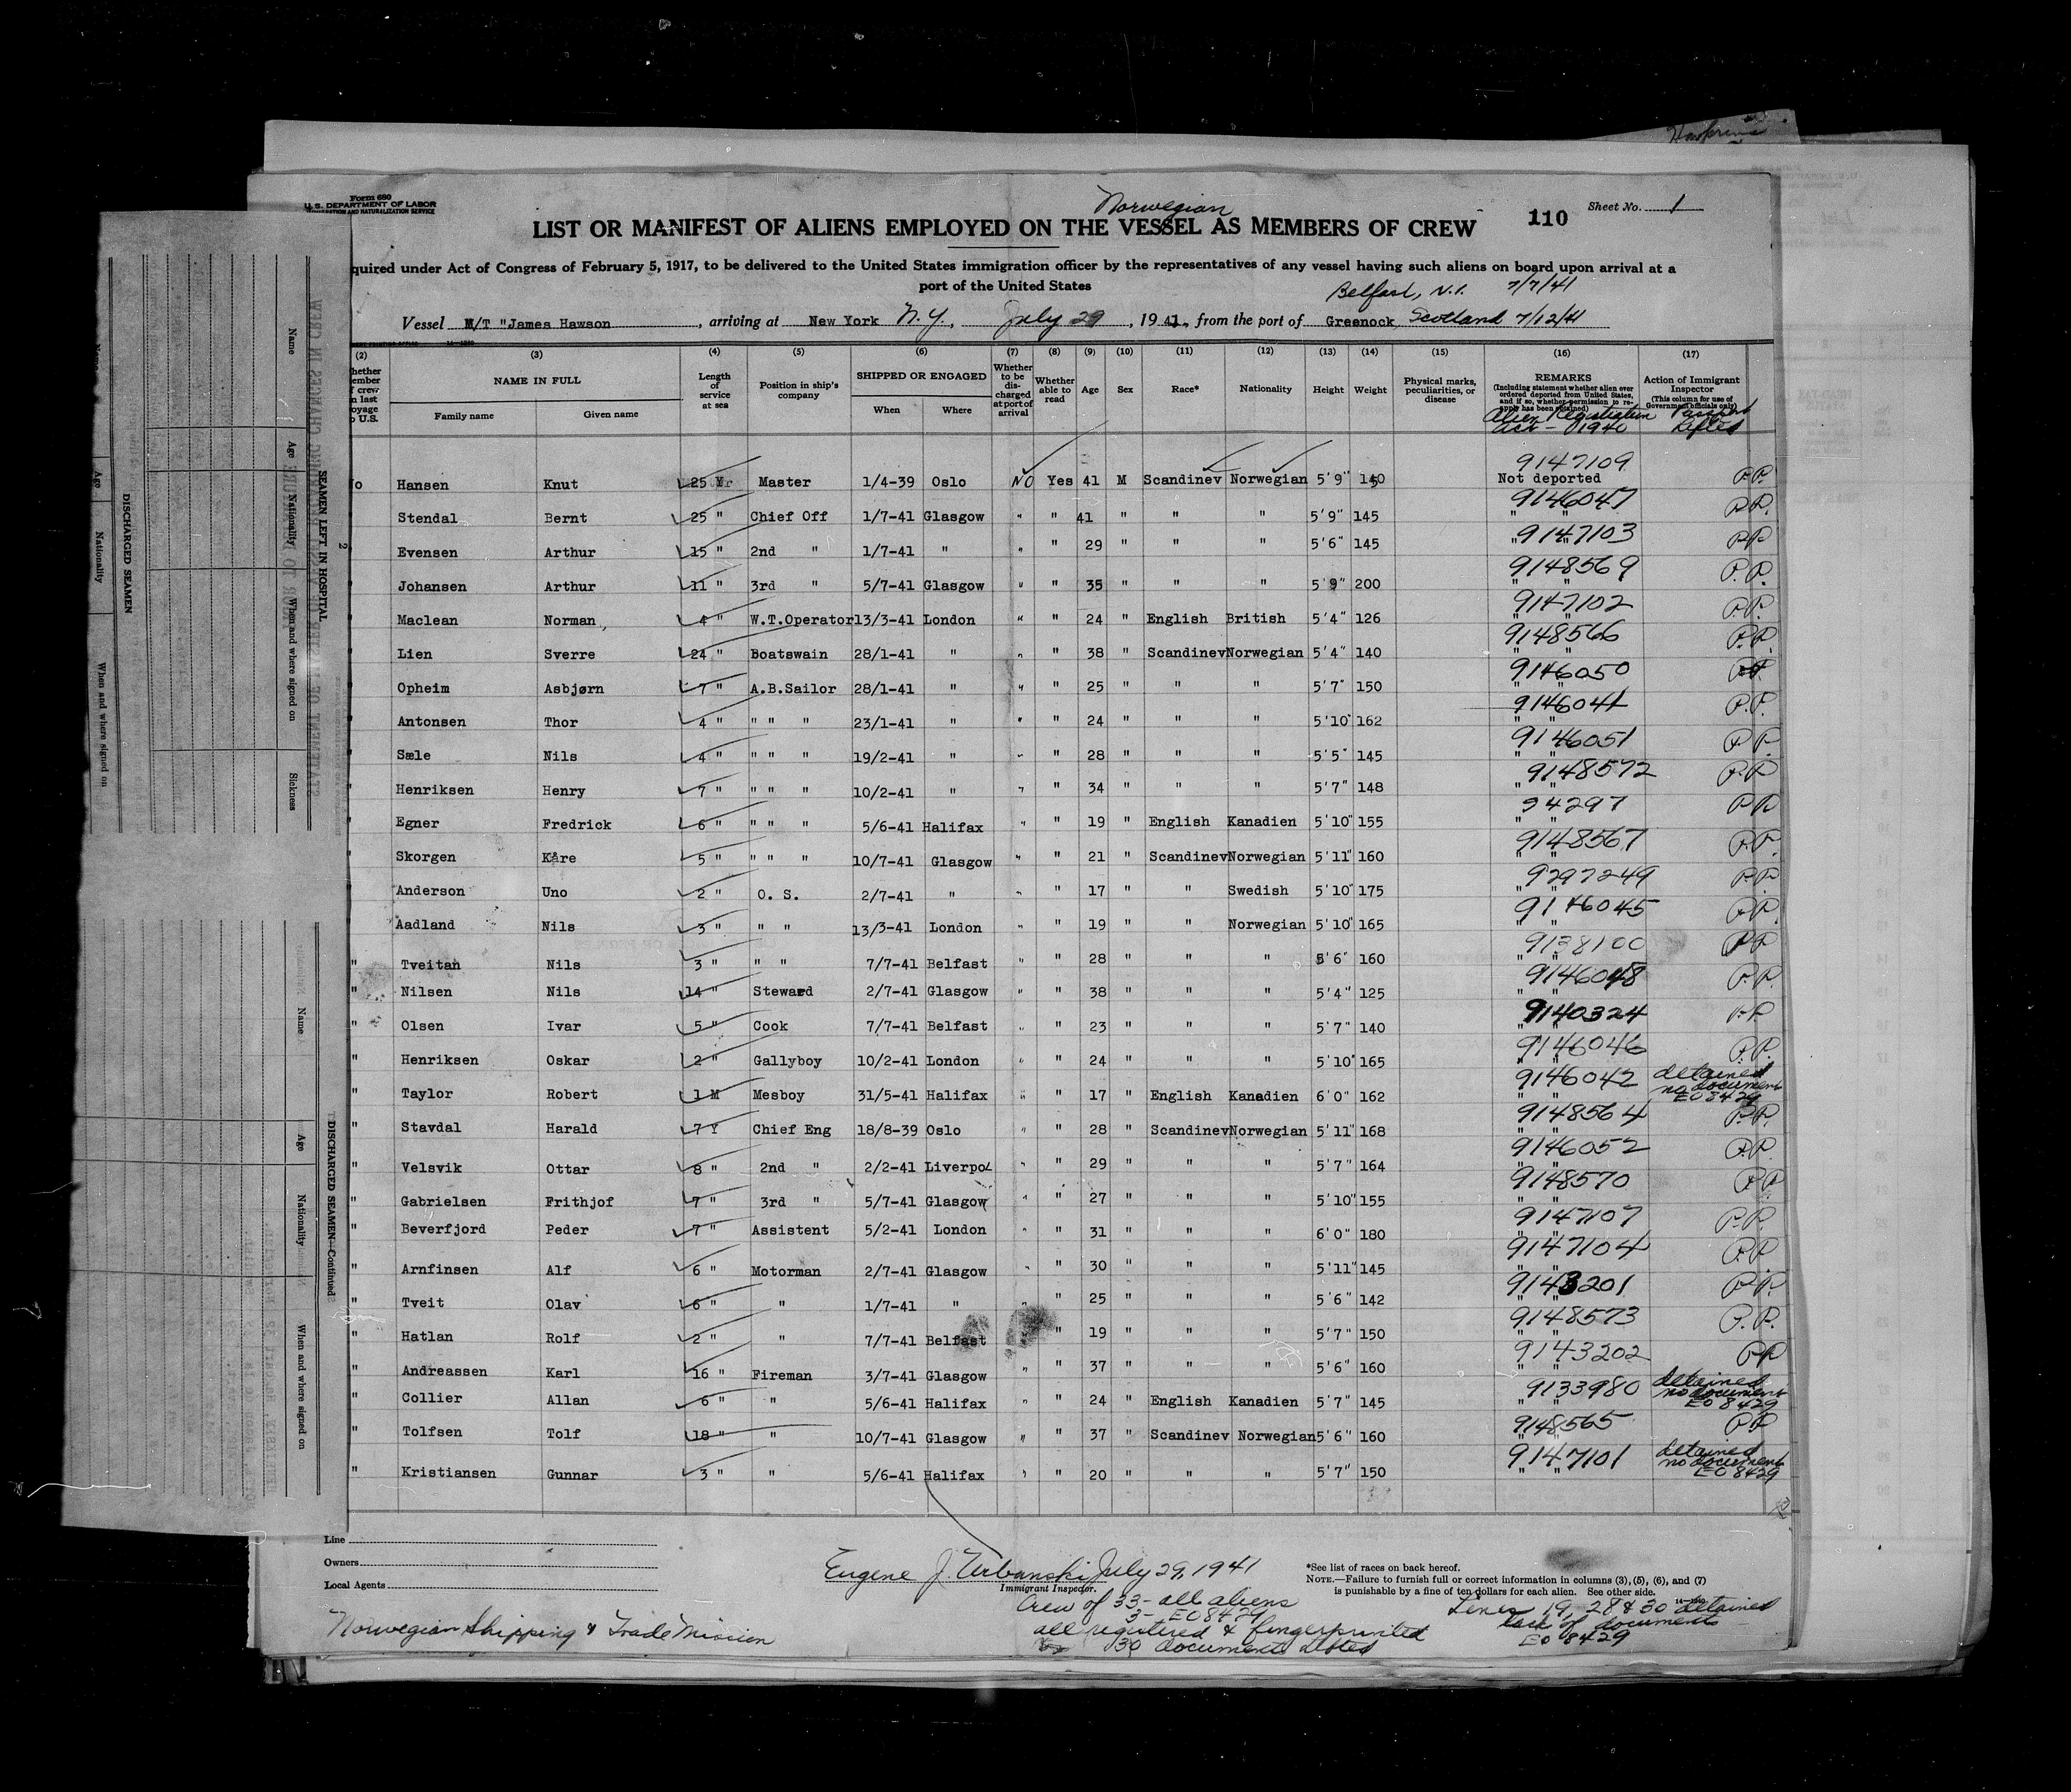 Form 680
U. S. DEPARTMENT OF LABOR
IMMIGRATION AND NATURALIZATION SERVICE
Norwegian
Sheet No. 1
110
LIST OR MANIFEST OF ALIENS EMPLOYED ON THE VESSEL AS MEMBERS OF CREW
quired under Act of Congress of February 5, 1917, to be delivered to the United States immigration officer by the representatives of any vessel having such aliens on board upon arrival at a
port of the United States
Belfast, N.I. 7/7/41
Vessel M/T "James Hawson , arriving at New York N.Y. , July 29 , 1941, from the port of Greenock, Scotland 7/12/41
(2) (3) (4) (5) (6) (7) (8) (9) (10) (11) (12) (13) (14) (15) (16) (17)
hether ember f crew n last oyage o U.S. NAME IN FULL Family name Given name Length of service at sea Position in ship's company SHIPPED OR ENGAGED When Where Whether to be discharged at port of arrival Whether able to read Age Sex Race* Nationality Height Weight Physical marks, peculiarities, or disease REMARKS (Including statement whether alien ever ordered deported from United States, and if so, whether permission to reapply has been obtained) Action of Immigrant Inspector (This column for use of Government officials only)
Alien Registration Act - 1940 Passport Lifted
o Hansen Knut 25 Yr Master 1/4-39 Oslo NO Yes 41 M Scandinev Norwegian 5'9" 140 9147109 Not deported P.P.
Stendal Bernt 25 " Chief Off 1/7-41 Glasgow " " 41 " " " 5'9" 145 9146047 " " P.P.
Evensen Arthur 15 " 2nd " 1/7-41 " " " 29 " " " 5'6" 145 9147103 " " P.P.
Johansen Arthur 11 " 3rd " 5/7-41 Glasgow " " 35 " " " 5'9" 200 9148569 " " P.P.
Maclean Norman 4 " W.T.Operator 13/3-41 London " " 24 " English British 5'4" 126 9147102 " " P.P.
Lien Sverre 24 " Boatswain 28/1-41 " " " 38 " Scandinev Norwegian 5'4" 140 9148566 " " P.P.
Opheim Asbjørn 7 " A.B.Sailor 28/1-41 " " " 25 " " " 5'7" 150 9146050 " " P.P.
Antonsen Thor 4 " " " " 23/1-41 " " " 24 " " " 5'10" 162 9146041 " " P.P.
Sæle Nils 4 " " " " 19/2-41 " " " 28 " " " 5'5" 145 9146051 " " P.P.
Henriksen Henry 7 " " " " 10/2-41 " " " 34 " " " 5'7" 148 9148572 " " P.P.
Egner Fredrick 6 " " " " 5/6-41 Halifax " " 19 " English Kanadien 5'10" 155 34297 " " P.P.
Skorgen Kåre 5 " " " " 10/7-41 Glasgow " " 21 " Scandinev Norwegian 5'11" 160 9148567 " " P.P.
Anderson Uno 2 " O. S. 2/7-41 " " " 17 " " Swedish 5'10" 175 9297249 " " P.P.
Aadland Nils 3 " " " 13/3-41 London " " 19 " " Norwegian 5'10" 165 9146045 " " P.P.
" Tveitan Nils 3 " " " 7/7-41 Belfast " " 28 " " " 5'6" 160 9138100 " " P.P.
" Nilsen Nils 14 " Steward 2/7-41 Glasgow " " 38 " " " 5'4" 125 9146048 " " P.P.
" Olsen Ivar 5 " Cook 7/7-41 Belfast " " 23 " " " 5'7" 140 9140324 " " P.P.
" Henriksen Oskar 2 " Gallyboy 10/2-41 London " " 24 " " " 5'10" 165 9146046 " " P.P.
" Taylor Robert 1 M Mesboy 31/5-41 Halifax " " 17 " English Kanadien 6'0" 162 9146042 " " detained no document EO 8429
" Stavdal Harald 7 Y Chief Eng 18/8-39 Oslo " " 28 " Scandinev Norwegian 5'11" 168 9148564 " " P.P.
" Velsvik Ottar 8 " 2nd " 2/2-41 Liverpol " " 29 " " " 5'7" 164 9146052 " " P.P.
" Gabrielsen Frithjof 7 " 3rd " 5/7-41 Glasgow " " 27 " " " 5'10" 155 9148570 " " P.P.
" Beverfjord Peder 7 " Assistent 5/2-41 London " " 31 " " " 6'0" 180 9147107 " " P.P.
" Arnfinsen Alf 6 " Motorman 2/7-41 Glasgow " " 30 " " " 5'11" 145 9147104 " " P.P.
" Tveit Olav 6 " " 1/7-41 " " " 25 " " " 5'6" 142 9143201 " " P.P.
" Hatlan Rolf 2 " " 7/7-41 Belfast " 19 " " " 5'7" 150 9148573 " " P.P.
" Andreassen Karl 16 " Fireman 3/7-41 Glasgow " " 37 " " " 5'6" 160 9143202 " " P.P.
" Collier Allan 6 " " 5/6-41 Halifax " " 24 " English Kanadien 5'7" 145 9133980 " " detained no document EO 8429
" Tolfsen Tolf 18 " " 10/7-41 Glasgow " " 37 " Scandinev Norwegian 5'6" 160 9148565 " " P.P.
" Kristiansen Gunnar 3 " " 5/6-41 Halifax " " 20 " " " 5'7" 150 9147101 " " detained no document EO 8429
Line
Owners
Local Agents
Norwegian Shipping & Trade Mission
Eugene J. Urbanski, July 29, 1941
Immigrant Inspector.
Crew of 33 - all aliens
3 - EO 8429
all registered & fingerprinted
30 documents listed
*See list of races on back hereof.
NOTE.—Failure to furnish full or correct information in columns (3), (5), (6), and (7)
is punishable by a fine of ten dollars for each alien. See other side.
Lines 19, 28 & 30 detained
lack of documents
EO 8429
SEAMEN LEFT IN HOSPITAL
Name Age Nationality When and where signed on Sickness
DISCHARGED SEAMEN
Age Nationality When and where signed on
DISCHARGED SEAMEN—Continued
Name Age Nationality When and where signed on